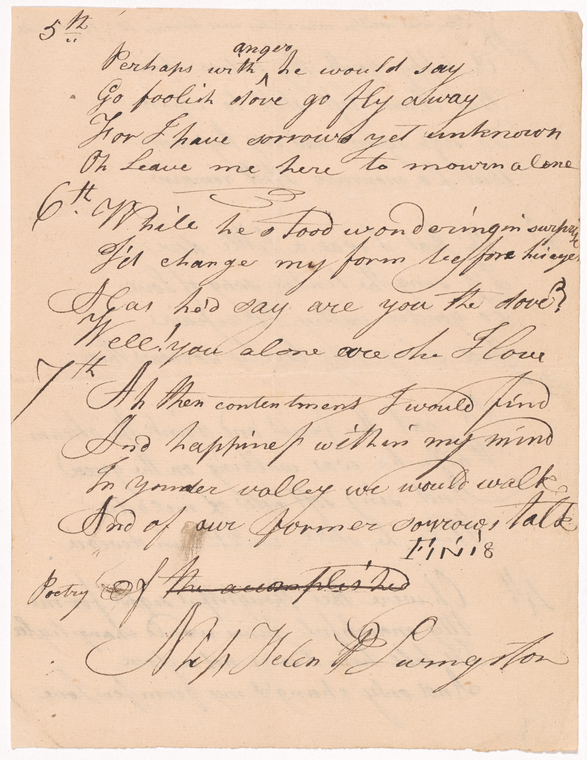 5th
Perhaps with anger he would say
Go foolish dove go fly away
For I have sorrows yet unknown
Oh Leave me here to mourn alone
6th
While he stood wondering in surprize
I'd change my form before his eyes
Alas he'd say are you the dove?
Well! you alone are she I love
7th
Ah then contentment I would find
And happiness within my mind
In yonder valley we would walk
And of our former sorrows talk
FINIS
Poetry Of the accomplished
Miss Helen P Livingston